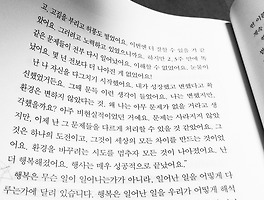 고, 고집을 부리고 허풍도 떨었어요. 이번엔 더 잘할 수 있을
었어요. 그러려고 노력하고 있었으니까요. 하지만 2, 3주 만에 똑
같은 문제들이 전부 다시 일어났어요. 이해할 수 없었어요. 눈물이
났어요. 몇 년 전보다 더 나아진 게 없었어요!
난 나 자신을 다그치기 시작했어요. 내가 성장했고 변했다고 확
신했었거든요. 그때 문득 이런 생각이 들었어요. 나는 변했지만,
환경은 변하지 않았다는 것. 왜 나는 아무 문제가 없을 거라고 생
각했을까요? 아주 비현실적이었던 거예요. 문제는 사라지지 않았
지만, 이제 난 그 문제들을 다르게 처리할 수 있을 것 같았어요. 그
것은 하나의 도전이고, 그것이 세상의 모든 차이를 만드는 것이었
어요. 환경을 바꾸려는 시도를 멈추자 모든 것이 나아졌어요. 난
더 행복해졌어요. 행사는 매우 성공적으로 끝났어요."
행복은 무슨 일이 일어나는가가 아니라, 일어난 일을 어떻게 다
루는가에 달려 있습니다. 행복은 일어난 일을 우리가 어떻게 해석